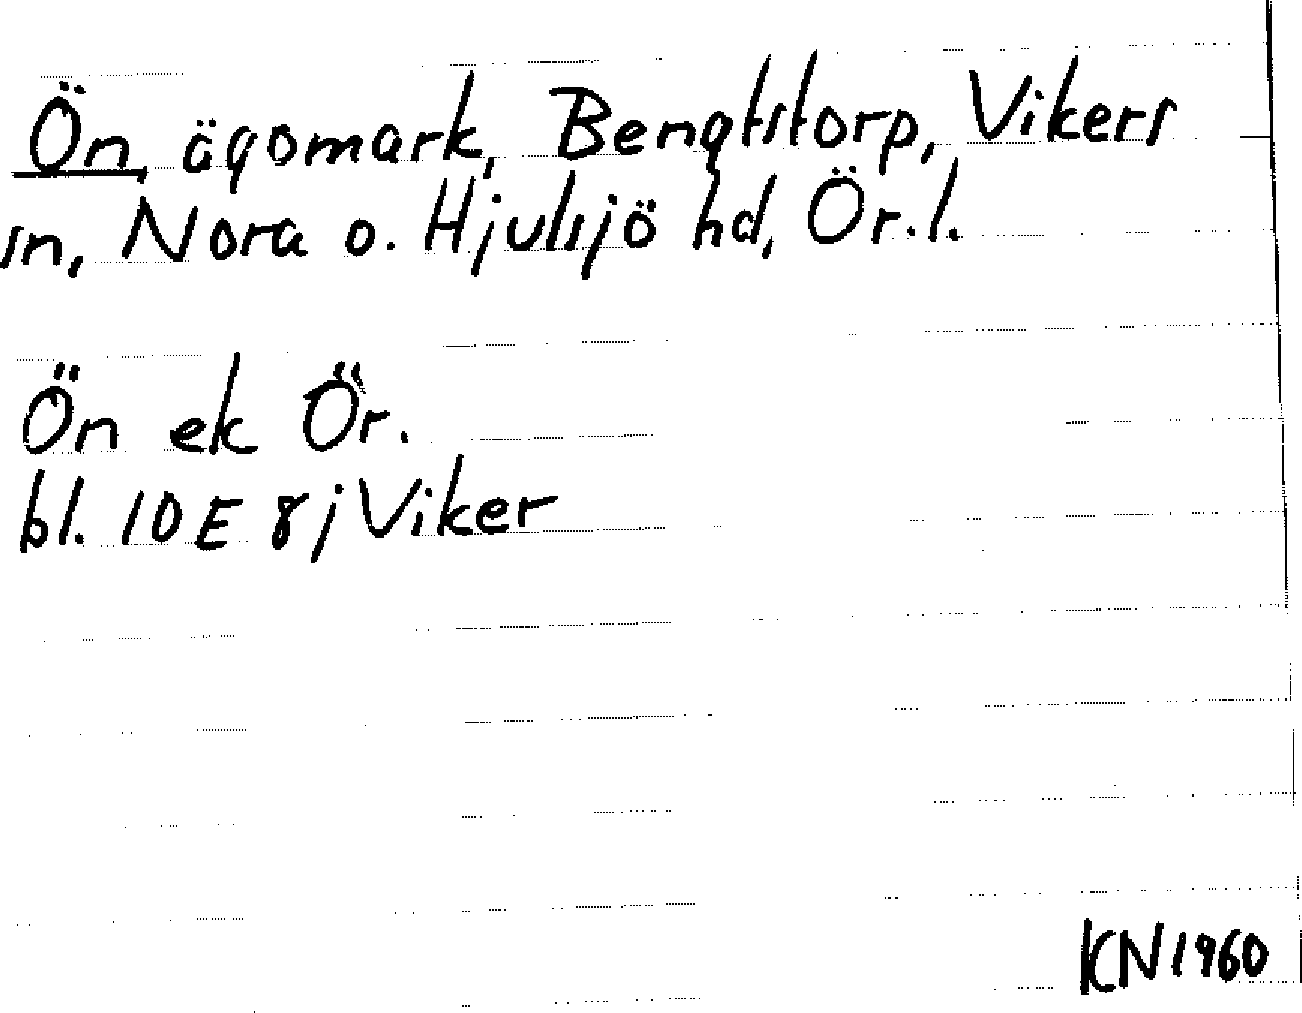 Ön, ägomark, Bengtstorp, Vikers
sn, Nora o. Hjulsjö hd, Ör. l.
Ön ek Ör.
bl. 10 E 8 j Viker
KN 1960